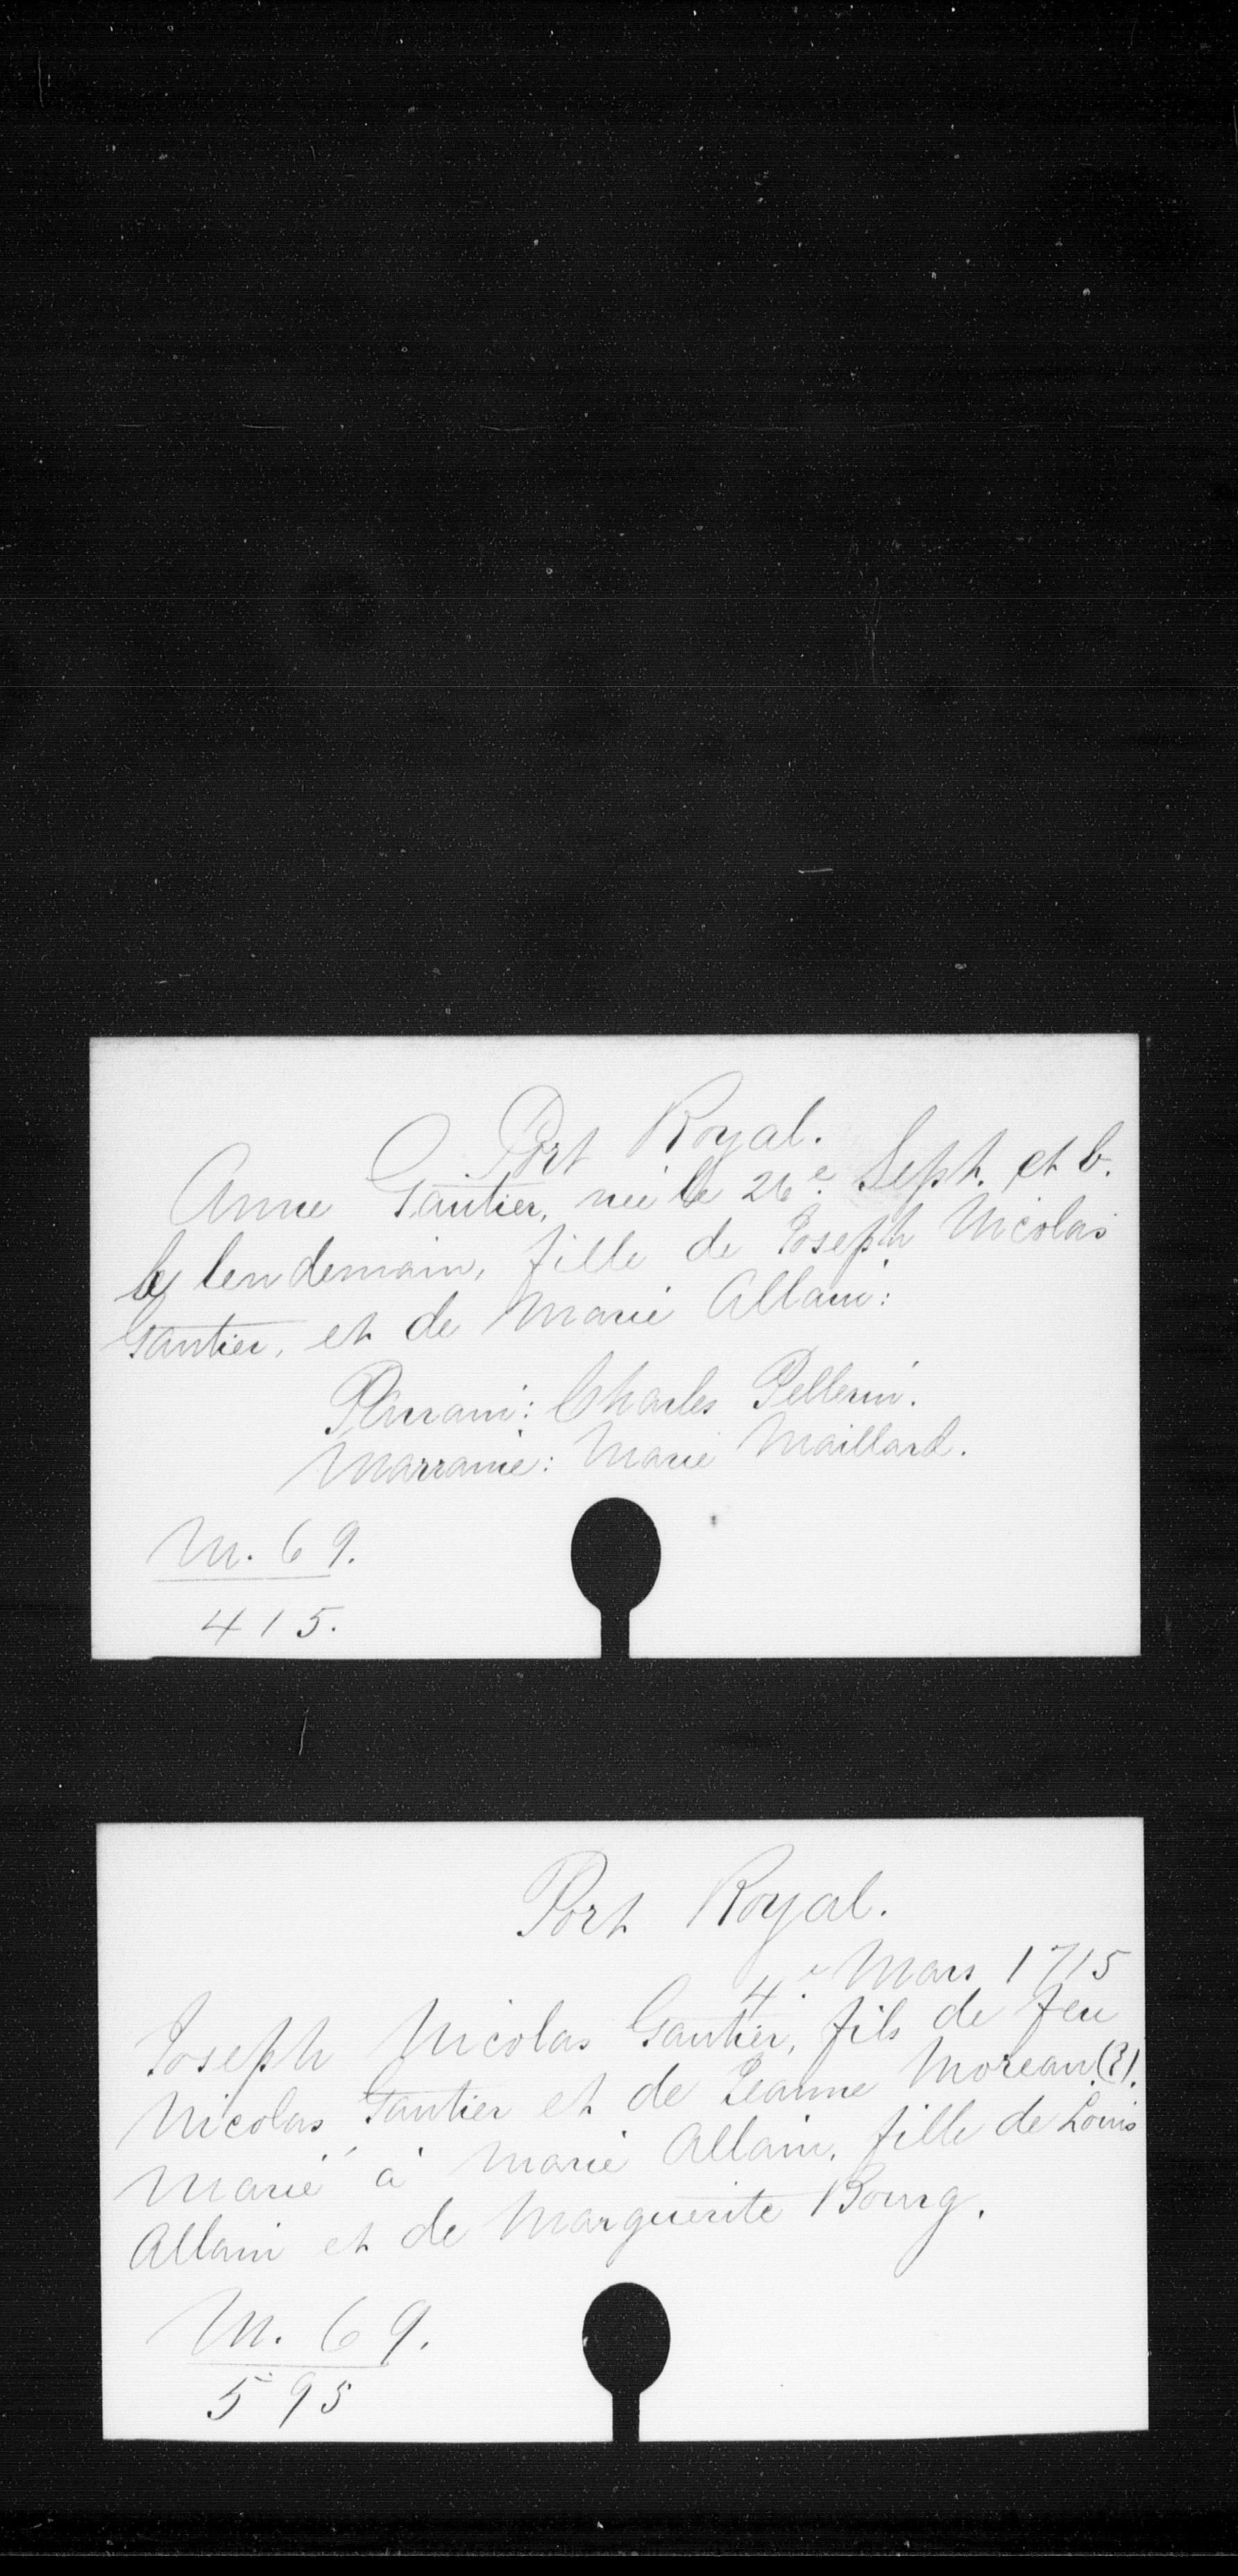 Port Royal.
Anne Gautier, née le 26e Sept. et b.
le lendemain, fille de Joseph Nicolas
Gautier, et de Marie Allain:
Parrain: Charles Pellerin.
Marraine: Marie Maillard.
M. 69.
415.
Port Royal.
4e Mars 1715
Joseph Nicolas Gautier, fils de feu
Nicolas Gautier et de Jeanne Moreau (?).
Marié à Marie Allain, fille de Louis
Allain et de Marguerite Bourg.
M. 69.
595